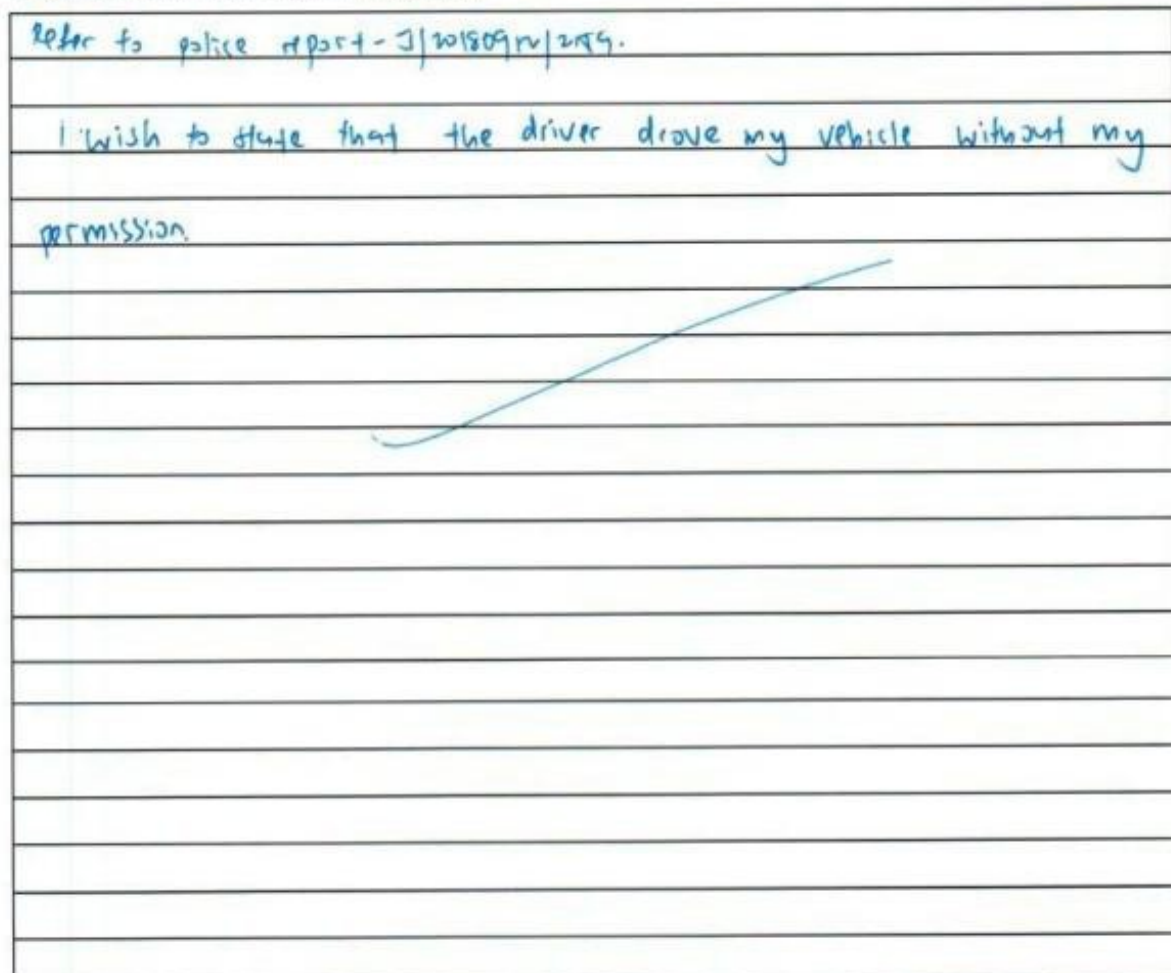 Refer to police report -
I wish to state that the driver drove my vehicle without my
permission.